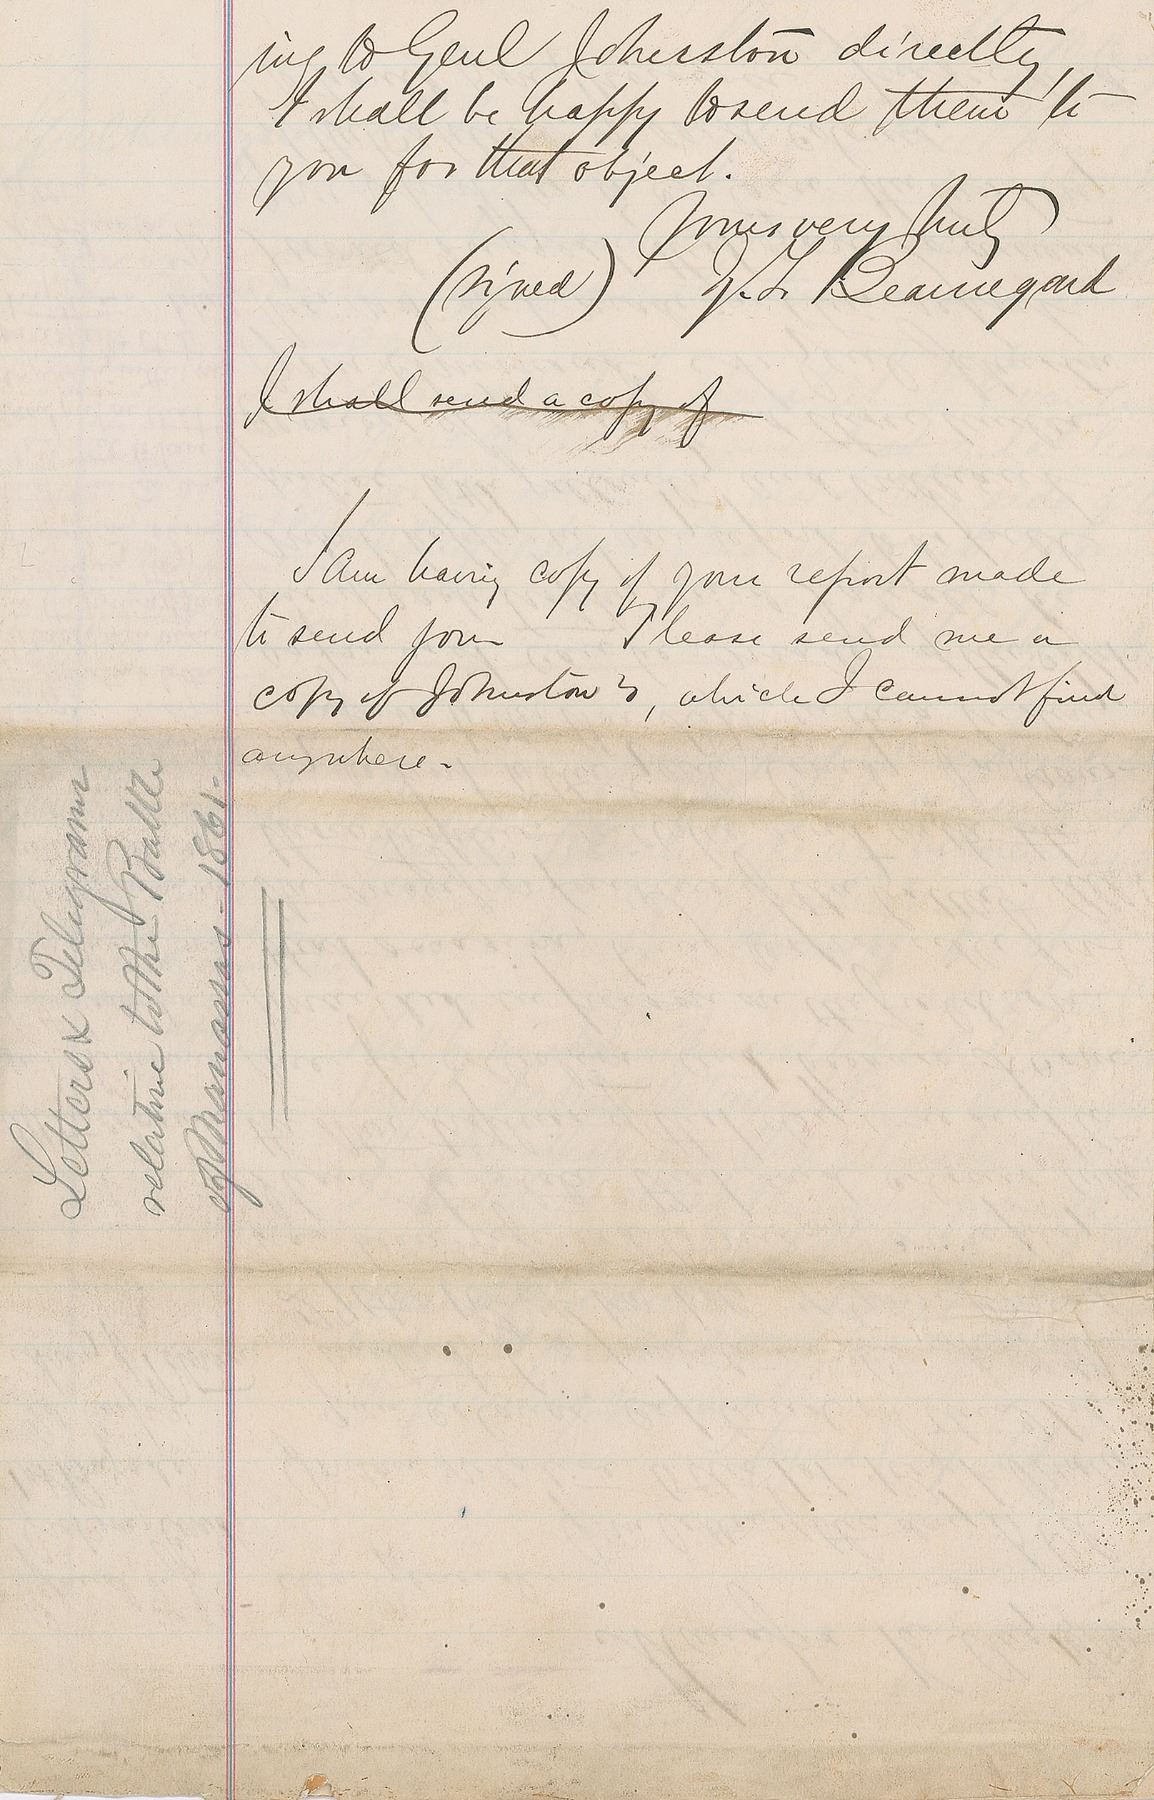 ing to Genl Johnston directly,
I shall be happy to send them to
you for that object.
Yours very truly
(signed) G. T. Beauregard
I shall send a copy of
I am having copy of your report made
to send you Please send me a
copy of Johnston's, which I cannot find
anywhere.
Letters & Telegrams
relative to the Battle
of Manassas - 1861.